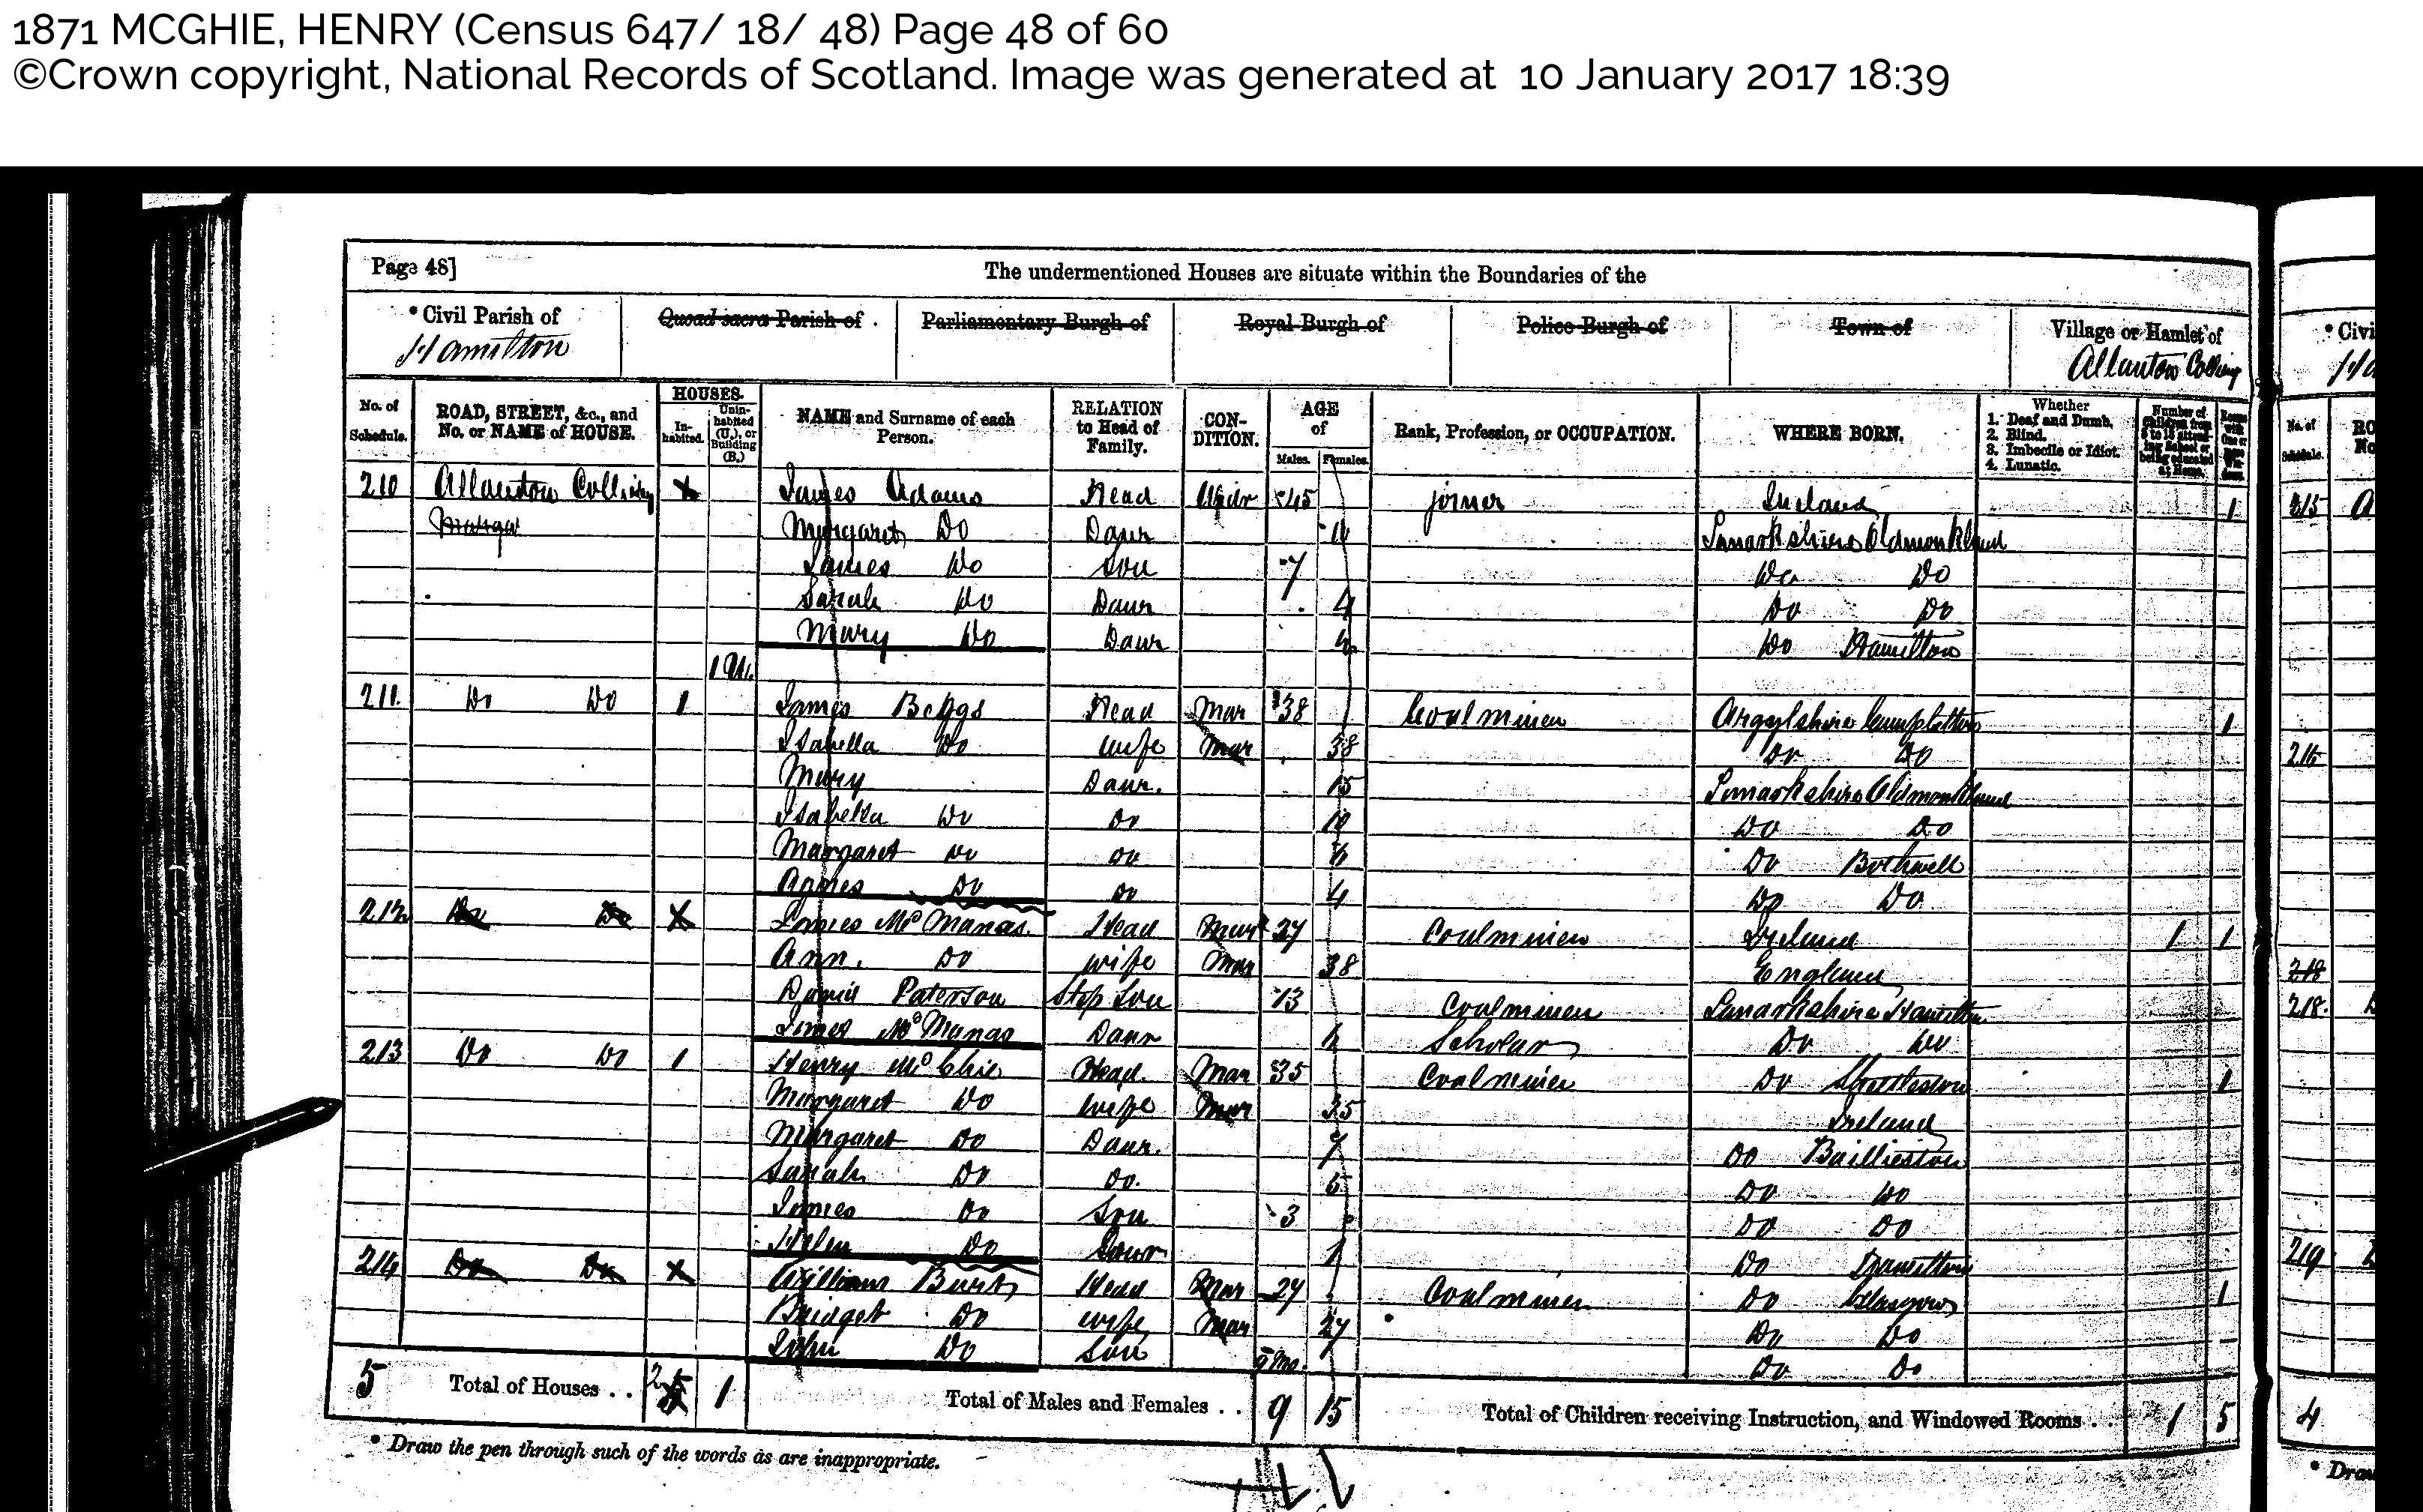 1871 MCGHIE, HENRY (Census 647/ 18/ 48) Page 48 of 60
©Crown copyright, National Records of Scotland. Image was generated at 10 January 2017 18:39
Page 48]
The undermentioned Houses are situate within the Boundaries of the
* Civil Parish of Quoad sacra Parish of Parliamentary Burgh of Royal Burgh of Police Burgh of Town of Village or Hamlet of * Civi
Hamilton Allanton
No. of Schedule. ROAD, STREET, &c., and No. or NAME of HOUSE. HOUSES. In-habited. Unin-habited (U.), or Building (B.) NAME and Surname of each Person. RELATION to Head of Family. CON-DITION. AGE of Males. Females. Rank, Profession, or OCCUPATION. WHERE BORN. Whether 1. Deaf and Dumb. 2. Blind. 3. Imbecile or Idiot. 4. Lunatic. Number of Children from 5 to 13 attending School or being educated at Home. Rooms with One or more Windows.
210 Allanton James Adams Head 45 joiner Ireland 1 215
Margaret Do Daur 11 Lanarkshire Oldmonkland
James Do Son 7 Do Do
Sarah Do Daur 4 Do Do
Mary Do Daur Do Hamilton
1 U.
211. Do Do 1 James Beggs Head Mar 38 Coalminer Argylshire 1
Isabella Do wife Mar 38 Do Do
Mary Daur. 15 Lanarkshire Oldmonkland
Isabella Do Do 10 Do Do
Margaret Do Do 6 Do Bothwell
Agnes Do Do 4 Do Do
212 Do Do James Mc Manas Head Mar 27 Coalminer Ireland 1 1
Ann. Do wife Mar 38 England
David Paterson Step Son 13 Coalminer Lanarkshire Hamilton 218.
Mc Manas Daur 6 Scholar Do Do
213 Do Do 1 Henry Mc Ghie Head. Mar 35 Coalminer Do Shettleston 1
Margaret Do wife Mar 35 Ireland
Margaret Do Daur. 7 Do Baillieston
Sarah Do Do. 5 Do Do
James Do Son 3 Do Do
Helen Do Daur 1 Do Hamilton 219
214 Do Do William Head Mar 27 Coalminer Do Glasgow 1
Bridget Do wife Mar 27 Do Do
John Do Son Mo. Do Do
5 Total of Houses . . 2 1 Total of Males and Females . . 9 15 Total of Children receiving Instruction, and Windowed Rooms . . 1 5 4
* Draw the pen through such of the words as are inappropriate.